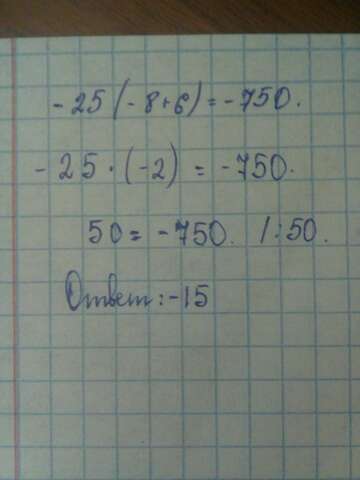 -25(-8+6)=-750.
-25·(-2)=-750.
50=-750. /:50.
Ответ:-15